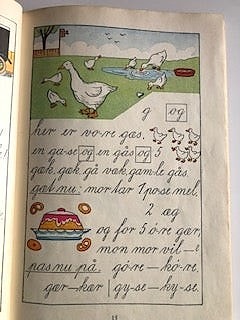 g og
her er vo-re gæs,
en ga-se og en gås og 5
gæk, gæk, gå væk, gam-le gås.
gæt nu: mor tar 1 po-se mel,
2 æg
og for 5 ø-re gær,
mon mor vil —
pas nu på. gø-re — hø-re.
gær — kær gy-se — ky-se.